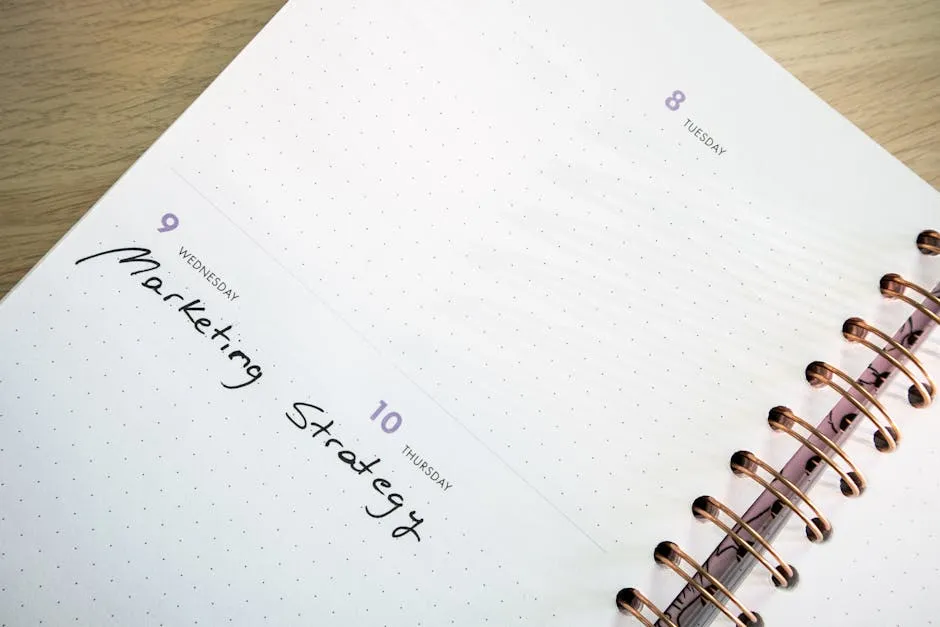 8
TUESDAY
9
WEDNESDAY
10
THURSDAY
Marketing Strategy